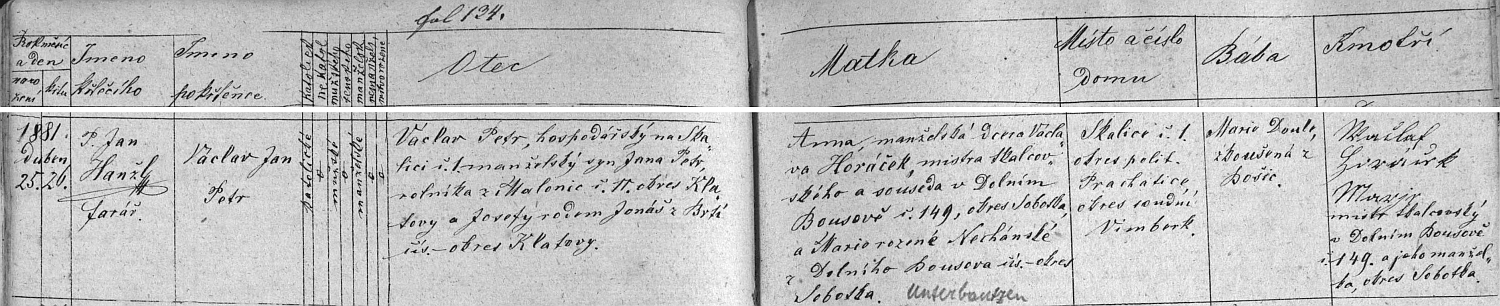 fol 134.
Rok měsíc
a den
naro
zení
křtu
Jméno
křtícího
Jméno
pokřtěnce.
katolické
nekatol.
mužského
ženského
manželské
nemanžels.
Otec
Matka
Místo a číslo
domu
Bába
Kmotři
1881.
duben,
25. 26.
P. Jan
Hanžl
farář.
Václav Jan
Petr
katolické
o
mužské
o
manželské
o
o
Václav Petr, hospodářský na Ska-
lici č. 1. manželský syn Jana Petr,
rolníka z Malonic č. 11. okres Kla-
tovy a Josefy rodem Jonáš z
čís. - okres Klatovy.
Anna, manželská dcera Václa-
va Horáček, mistra tkalcov-
ského a souseda v Dolním
Bousově č. 149, okres Sobotka,
a Marie rozené Nechánské
z Dolního Bousova čís. - okres
Sobotka. Unterbautzen
Skalice č. 1.
okres polit.
Prachatice,
okres soudní
Vimberk.
Marie Doule,
zkoušená z
Bošic.
Wácslaf
Horáček
Marie
mistr tkalcovský
v Dolním Bousově
č. 149. a jeho manžel-
ka, okres Sobotka.